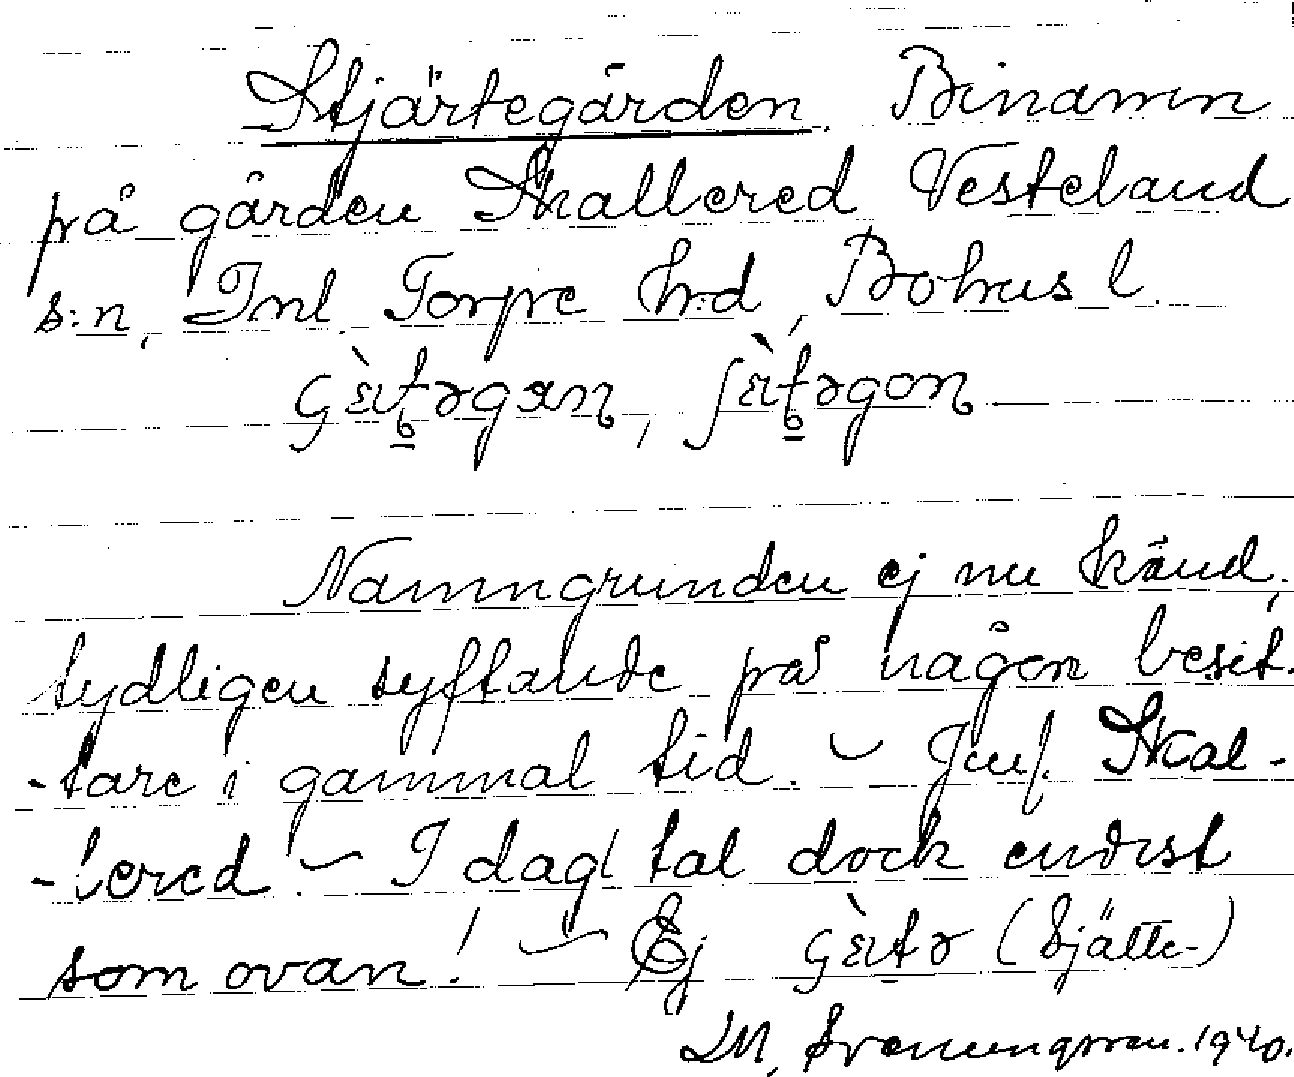 Stjärtegården Binamn
på gården Skallered Vesteland
s:n, Inl. Torpe hrd, Bohus l.
Namngrunden ej nu känd,
tydligen syftande på någon besit-
-tare i gammal tid. – Jmf. Skal-
-lered. – I dagl tal dock endast
som ovan! – Ej (Sjätte-)
LM, Svenungsson. 1940.